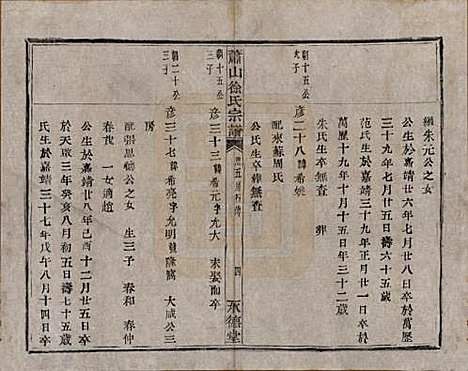 繼朱元公之女
公生於嘉靖廿六年七月廿八日卒於萬歷
三十九年七月廿五日壽六十五歲
范氏生於嘉靖三十九年正月初一日
萬歷十九年十月十五日年三十二歲
朱氏生卒無查 葬
朝十五公
大子
彥二十八諱希堯
配來蘇周氏
公氏生卒葬無查
蕭山徐氏宗譜
四
永德堂
朝十五公
三子
彥三十三諱希元字允大 未娶而卒
朝二十公
三子
彥三十七諱希亮字允明號隆橋 大成公三
房
配張思賢公之女 生三子 春和 春仲
春茂 一女適趙
公生於嘉靖廿八年己酉十二月廿五日卒
於天啟三年癸亥八月初五日壽七十五歲
氏生於嘉靖三十七年戊午八月十四日卒